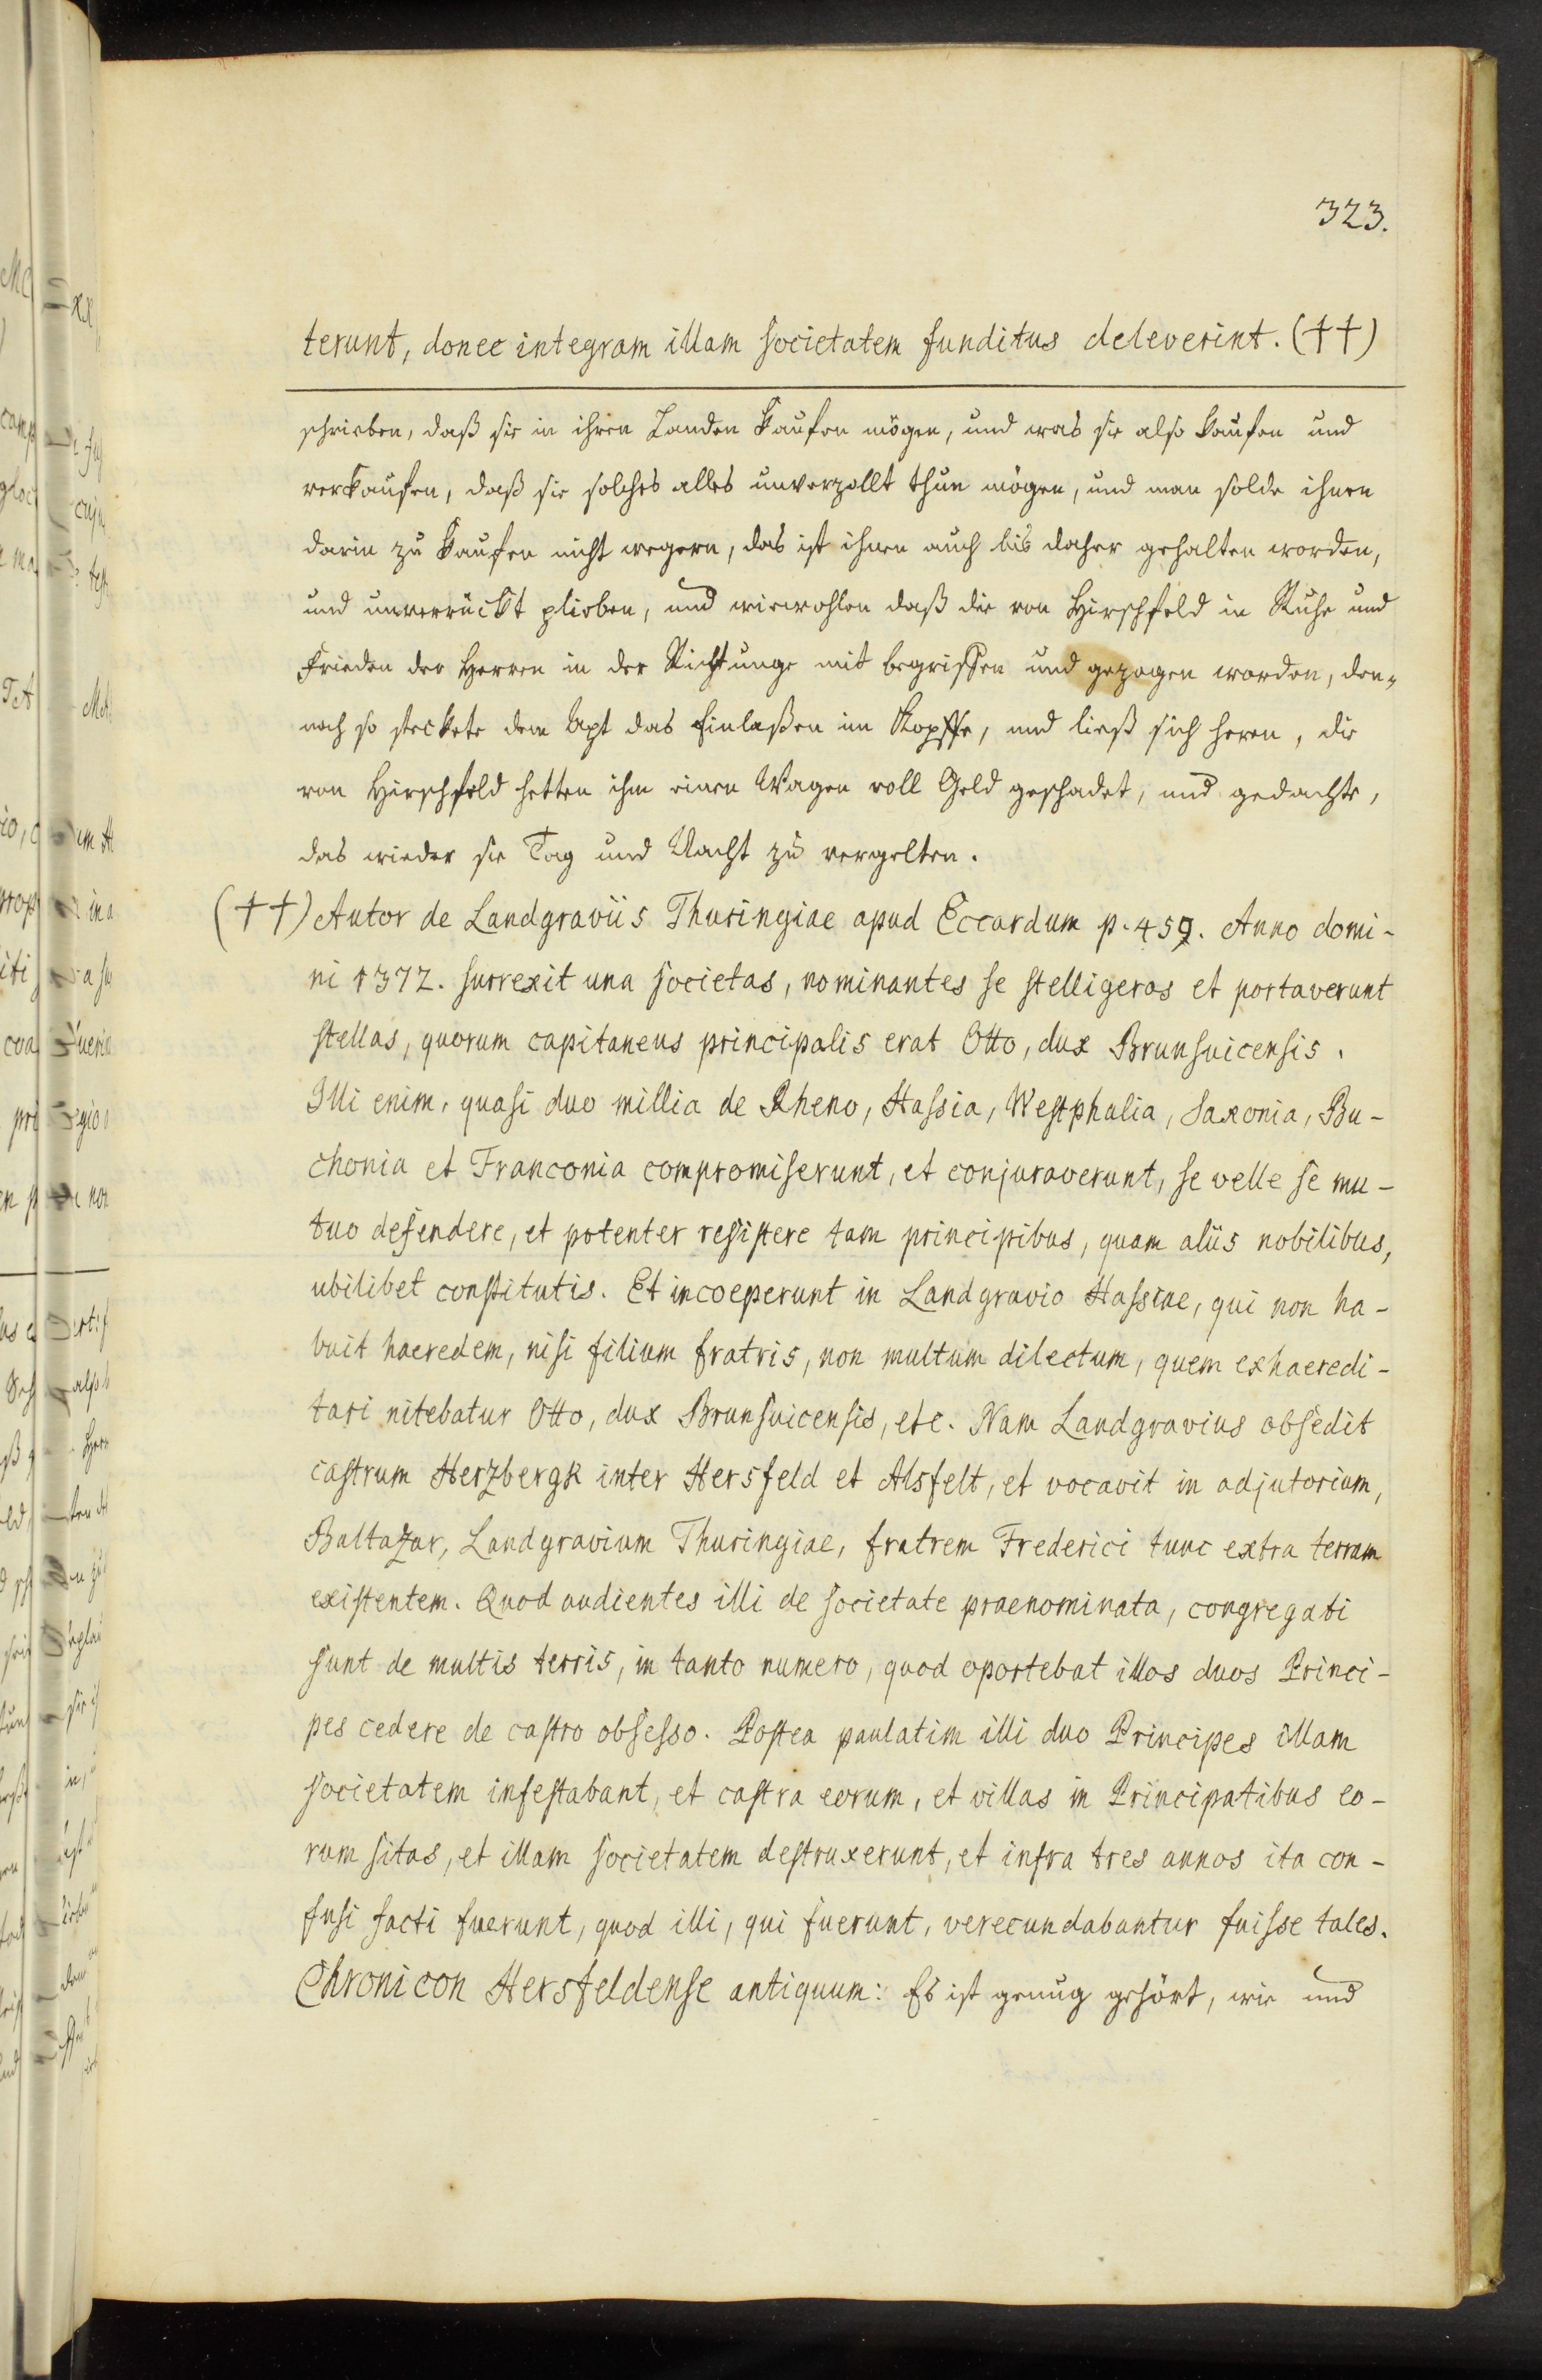 323.
terunt, donec integram illam societatem funditus deleverint. (††)
schrieben, daß sie in ihren Landen kaufen mögen, und was sie also kaufen und
verkaufen, daß sie solches alles unverzollt thun mögen, und man solde ihnen
darin zu kaufen nicht wegern, das ist ihnen auch bis daher gehalten worden,
und unverrückt plieben, und wiewohlen daß die von Hirschfeld in Ruhe und
Frieden der Herren in der Richtunge mit begriffen und gezogen worden, den-
noch so steckete dem Apt das Einlaßen im Kopffe, und ließ sich horen, die
von Hirschfeld hetten ihm einen Wagen voll Geld geschadet, und gedachte,
das wieder sie Tag und Nacht zu vergelten.
(††) Autor de Landgraviis Thuringiae apud Eccardum p. 459. Anno domi-
ni 1372. surrexit una societas, nominantes se stelligeros et portaverunt
stellas, quorum capitaneus principalis erat Otto, dux Brunsuicensis.
Illi enim, quasi duo millia de Rheno, Hassia, Westphalia, Saxonia, Bu-
chonia et Franconia compromiserunt, et conjuraverunt, se velle se mu-
tuo defendere, et potenter resistere tam principibus, quam aliis nobilibus,
ubilibet constitutis. Et incoeperunt in Landgravio Hassiae, qui non ha-
buit haeredem, nisi filium fratris, non multum dilectum, quem exhaeredi-
tari nitebatur Otto, dux Brunsuicensis, etc. Nam Landgravius obsedit
castrum Herzbergk inter Hersfeld et Alsfelt, et vocavit in adjutorium,
Baltazar, Landgravium Thuringiae, fratrem Frederici tunc extra terram
existentem. Quod audientes illi de societate praenominata, congregati
sunt de multis terris, in tanto numero, quod oportebat illos duos Princi-
pes cedere de castro obsesso. Postea paulatim illi duo Principes illam
societatem infestabant, et castra eorum, et villas in Principatibus eo-
rum sitas, et illam societatem destruxerunt, et infra tres annos ita con-
fusi facti fuerunt, quod illi, qui fuerunt, verecundabantur fuisse tales.
Chronicon Hersfeldense antiquum: Es ist genug gehört, wie und